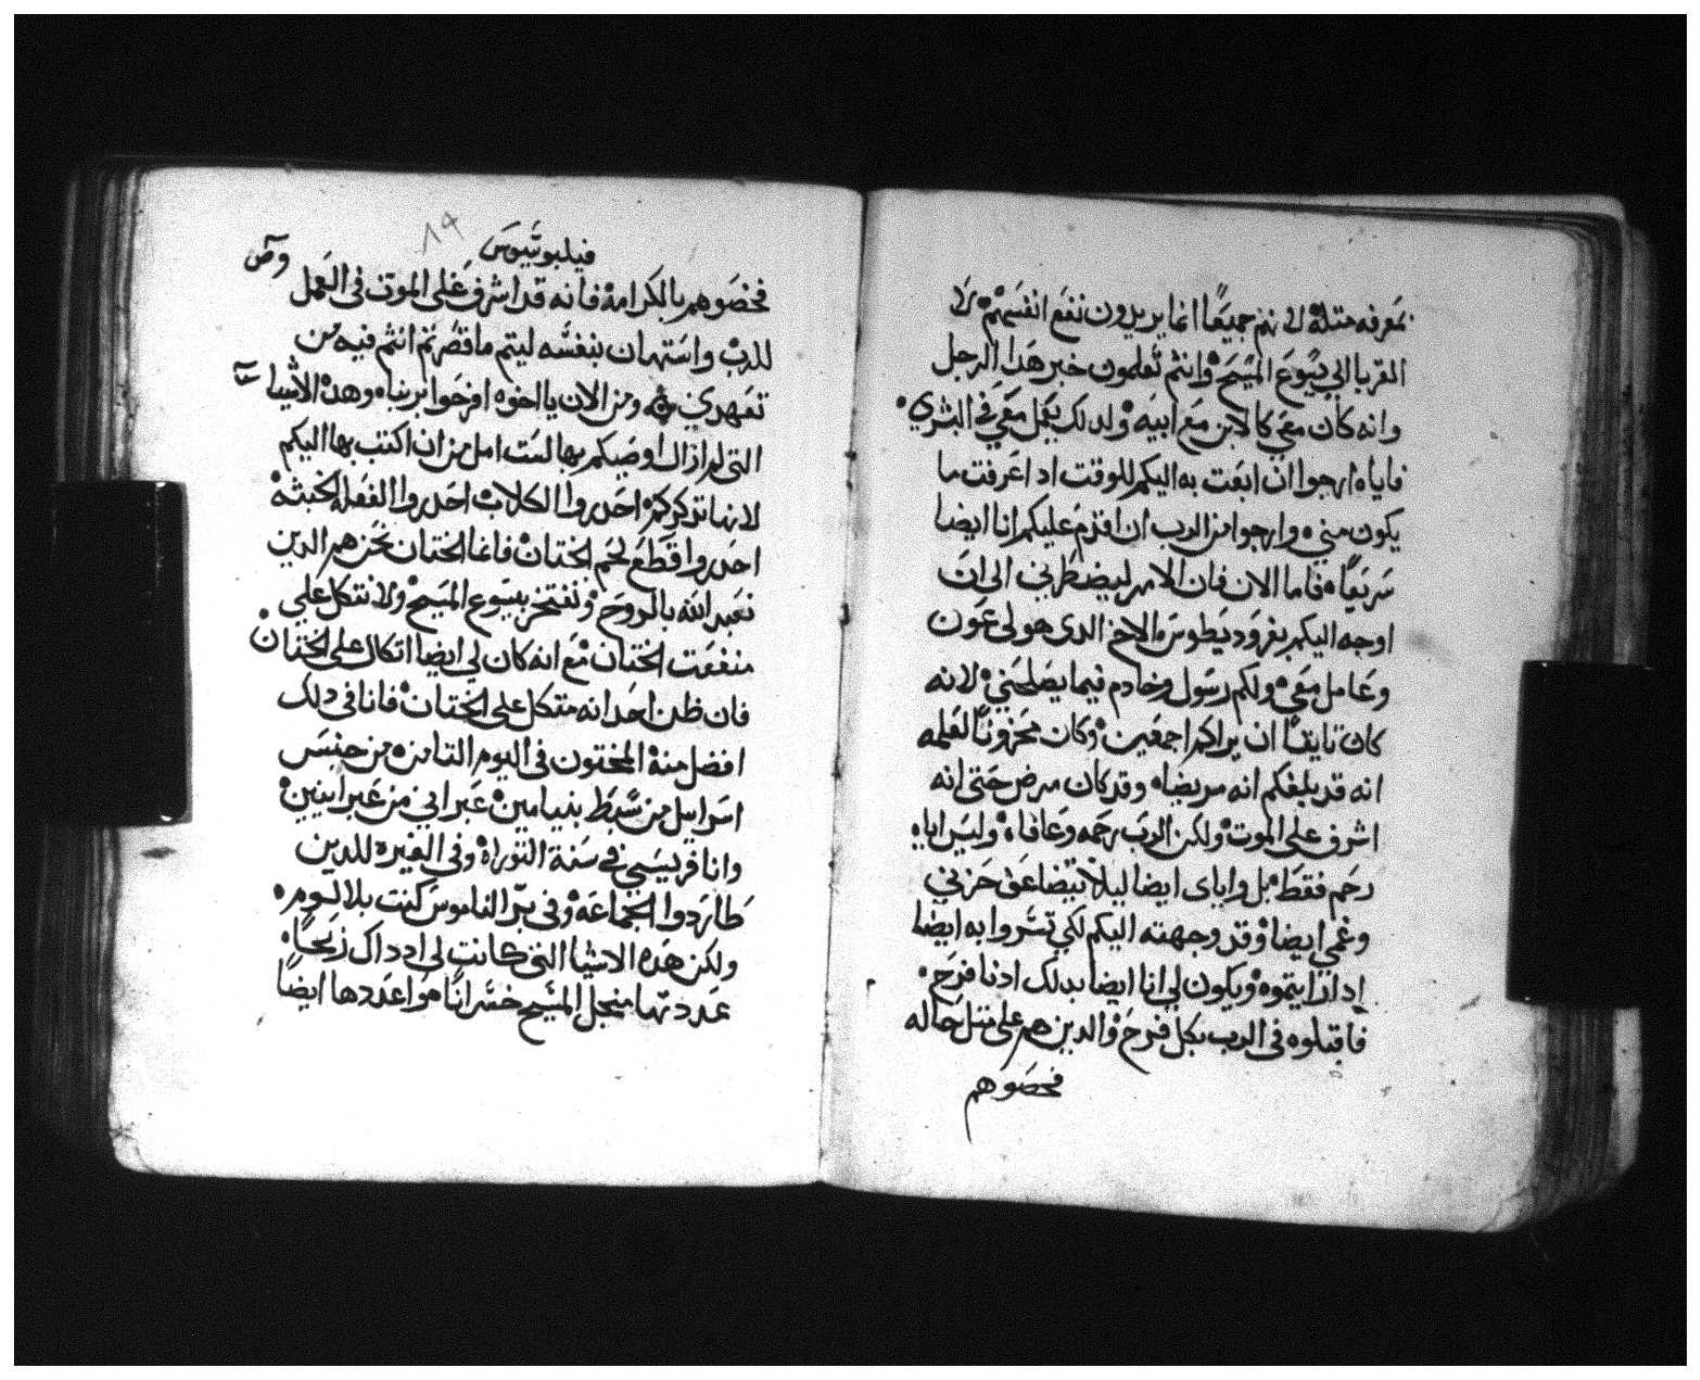 بمَعرفه متله لانهم جميعًا انما يريدون نفع انفسهم لا
القربا الي يسوع المسيح وانتم تعلمون خبر هدا الرجل
وانه كان معي كالابن مع ابيه ولدلك يعمل معي في البشري
فاياه ارجوا ان ابعت به اليكم للوقت ادا عرفت ما
يكون مني ه وارجوا من الرب ان اقدم عليكم انا ايضا
سريعًا ه فاما الان فان الامر ليضطرني الي ان
اوجه اليكم بفروديطوس الاخ الدي هو لي عون
وعامل معي ولكم رسول وخادم فيما يصلحني لانه
كان تايقًا ان يراكم اجمعين وكان محزونًا لعلمه
انه قد بلغكم انه مريضا ه وقد كان مرض حتي انه
اشرف علي الموت ولكن الرب رحمه وعافاه وليس اياه
رحم فقط بل واياي ايضا ليلا يتضاعف حزني
وغمي ايضا وقد وجهته اليكم لكي تسروا به ايضا
ادا رايتموه ويكون لي انا ايضا بدلك ادنا فرح
فاقبلوه في الرب بكل فرح والدين هم علي متل حاله
فخصوهم
فيلبوسيوس
٨٩
فخصوهم بالكرامة فانه قد اشرف علي الموت في العمل
للرب واستهان بنفسه ليتم ما قصرتم انتم فيه من
تعهدي ومن الان يا اخوه افرحوا بربنا ه وهده الاشيا
التي لم ازال اوصيكم بها لست امل من ان اكتب بها اليكم
لانها تدكركم احدروا الكلاب احدروا الفعله الخبثة
احدروا قطع لحم الختان فاغا الختان نحن هم الدين
نعبد الله بالروح ونفتخر بيسوع المسيح ولا نتكل علي
منفعت الختان مع انه كان لي ايضا اتكال علي الختان
فان ظن احد انه متكل علي الختان فانا في دلك
افضل منه المختون في اليوم التامن ه من جنس
اسراييل من سبط بنيامين عبراني من عبرانيين
وانا فريسي في سنة التوراة وفي الغيره للدين
طاردوا الجماعة وفي بر الناموس كنت بلا لوم ه
ولكن هده الاشيا التي كانت لي اد داك ربحًا
عددتها منجل المسيح خسرانًا هو اعددها ايضًا